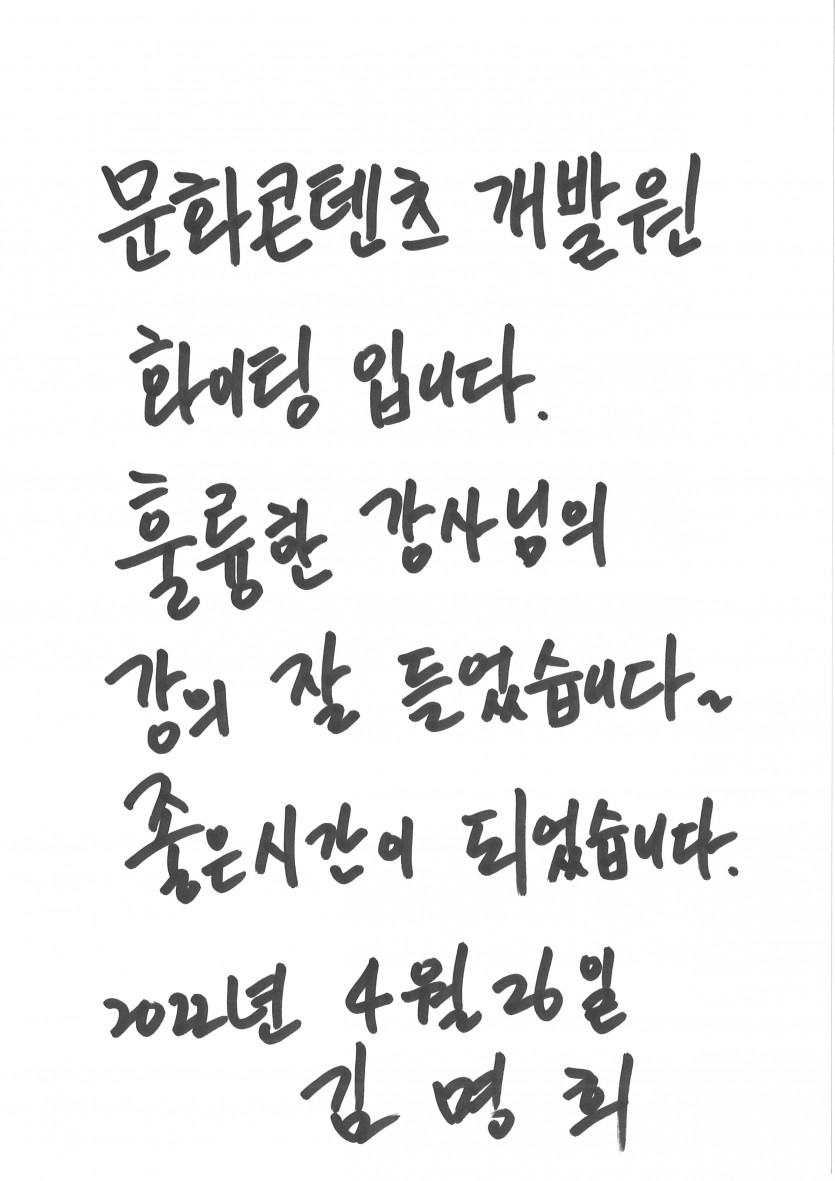 문화콘텐츠 개발원
화이팅 입니다.
훌륭한 강사님의
강의 잘 들었습니다~
좋은시간이 되었습니다.
2022년 4월 26일
김명희